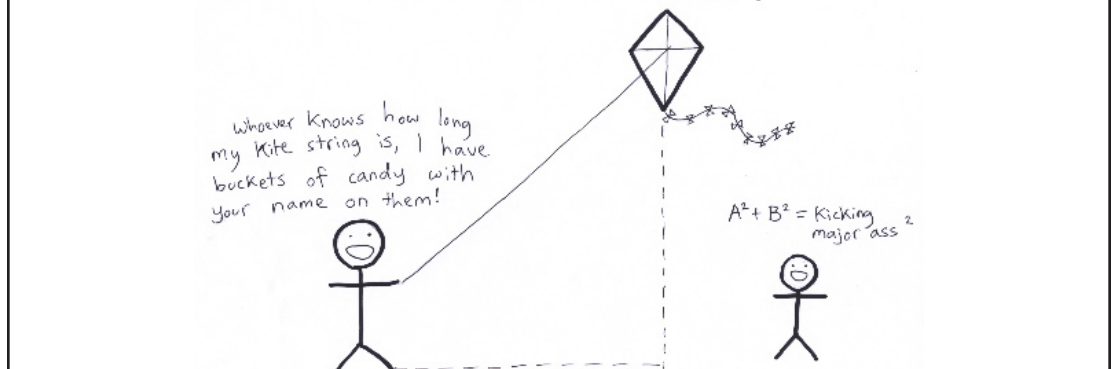 whoever knows how long
my kite string is, I have
buckets of candy with
your name on them!
A² + B² = Kicking
major ass ²